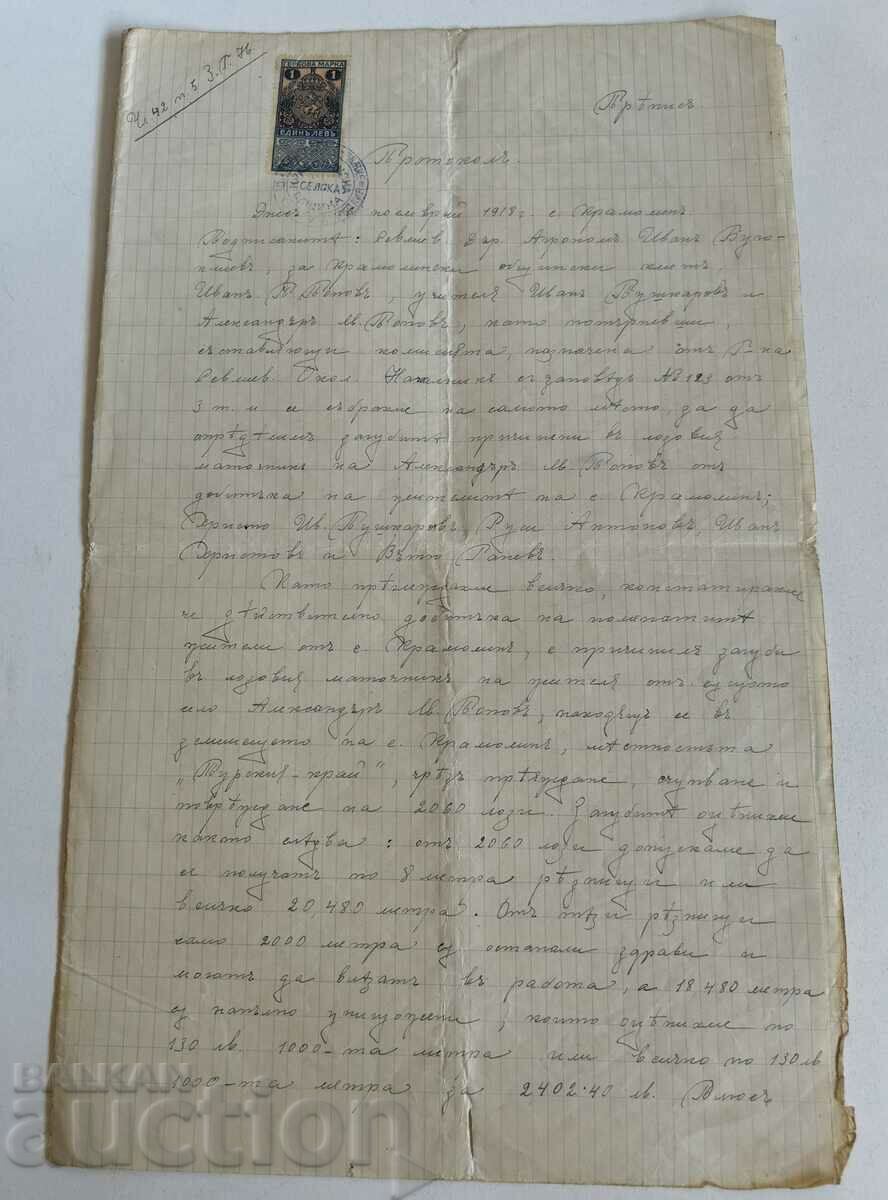 Чл. 42 п. 5 З. Г. Н.
ГЕРБОВА МАРКА
1 1
ЕДИНЪ ЛЕВЪ
1
СЕЛСКА
Прѣписъ.
Протоколъ.
Днесъ ноемврий 1918 г. с. Крамолинъ
Подписанитѣ: Севлиев. Агрономъ Иванъ
за Крамолински общински кметъ,
Иванъ П. Поповъ, учителя Иванъ Пушкаровъ и
Александъръ М. Поповъ, като потърпевши,
съставляющи комисията, назначена отъ Г-на
Севлиев. Окол. Началникъ съ заповѣдъ № 123 отъ
3 т. м. се събрахме на самото мѣсто, за да
опрѣдѣлимъ загубитѣ причинени въ лозовия
маточникъ на Александъръ М. Поповъ отъ
добитъка на жителитѣ на с. Крамолинъ;
Христо Ив. Пушкаровъ, Руси Антоновъ, Иванъ
Христовъ и Вътю Раневъ.
Като прѣгледахме всичко, констатирахме
че дѣйствително добитъка на поменатитѣ
жители отъ с. Крамолинъ, е причинилъ загуби
въ лозовия маточникъ на жителя отъ сѫщото
село Александъръ М. Поповъ, находящъ се въ
землището на с. Крамолинъ, мѣстностьта
„Турския-край", чрѣзъ счупване и
повреждане на 2060 лози. Загубитѣ оцѣнихме
както слѣдва: отъ 2060 лози допускаме да
се получатъ по 8 метра рѣзници или
всичко 20,480 метра. Отъ тѣзи рѣзници
само 2000 метра сѫ останали здрави и
могатъ да влѣзатъ въ работа, а 18,480 метра
сѫ напълно унищожени, които оцѣнихме по
130 лв. 1000-та метра или всичко по 130 лв
1000-та метра за 2402.40 лв.
BALKAN
auction